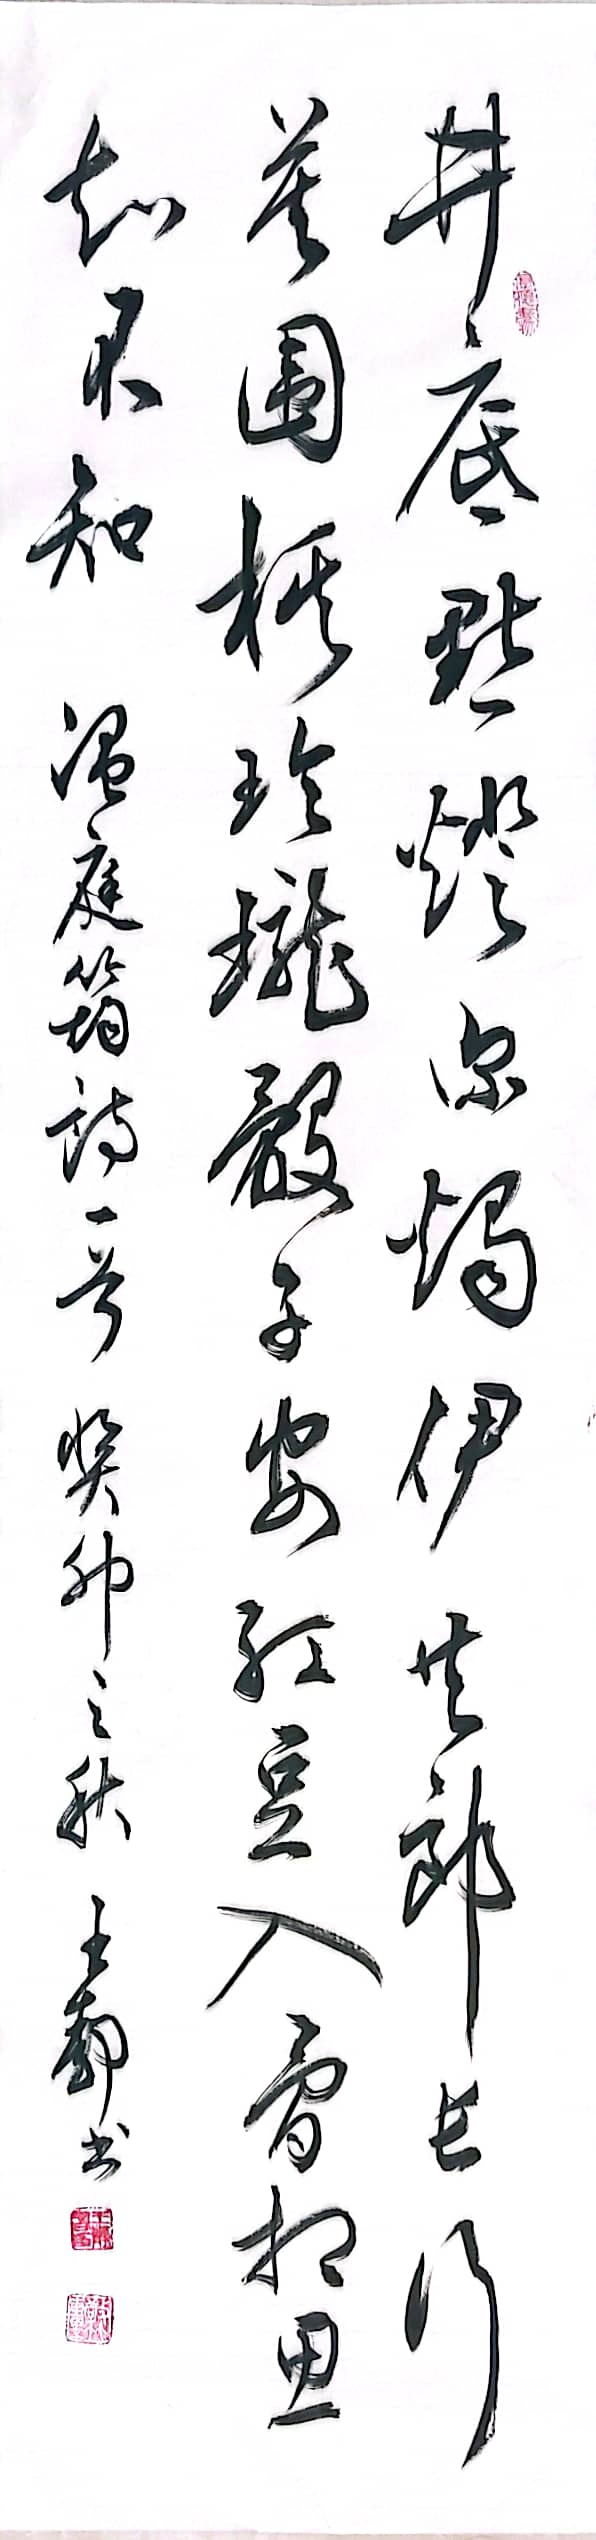 井底點燈深燭伊共郎長行
莫圍棋玲瓏骰子安紅豆入骨相思
知不知 溫庭筠詩一首 癸卯之秋 王靜書